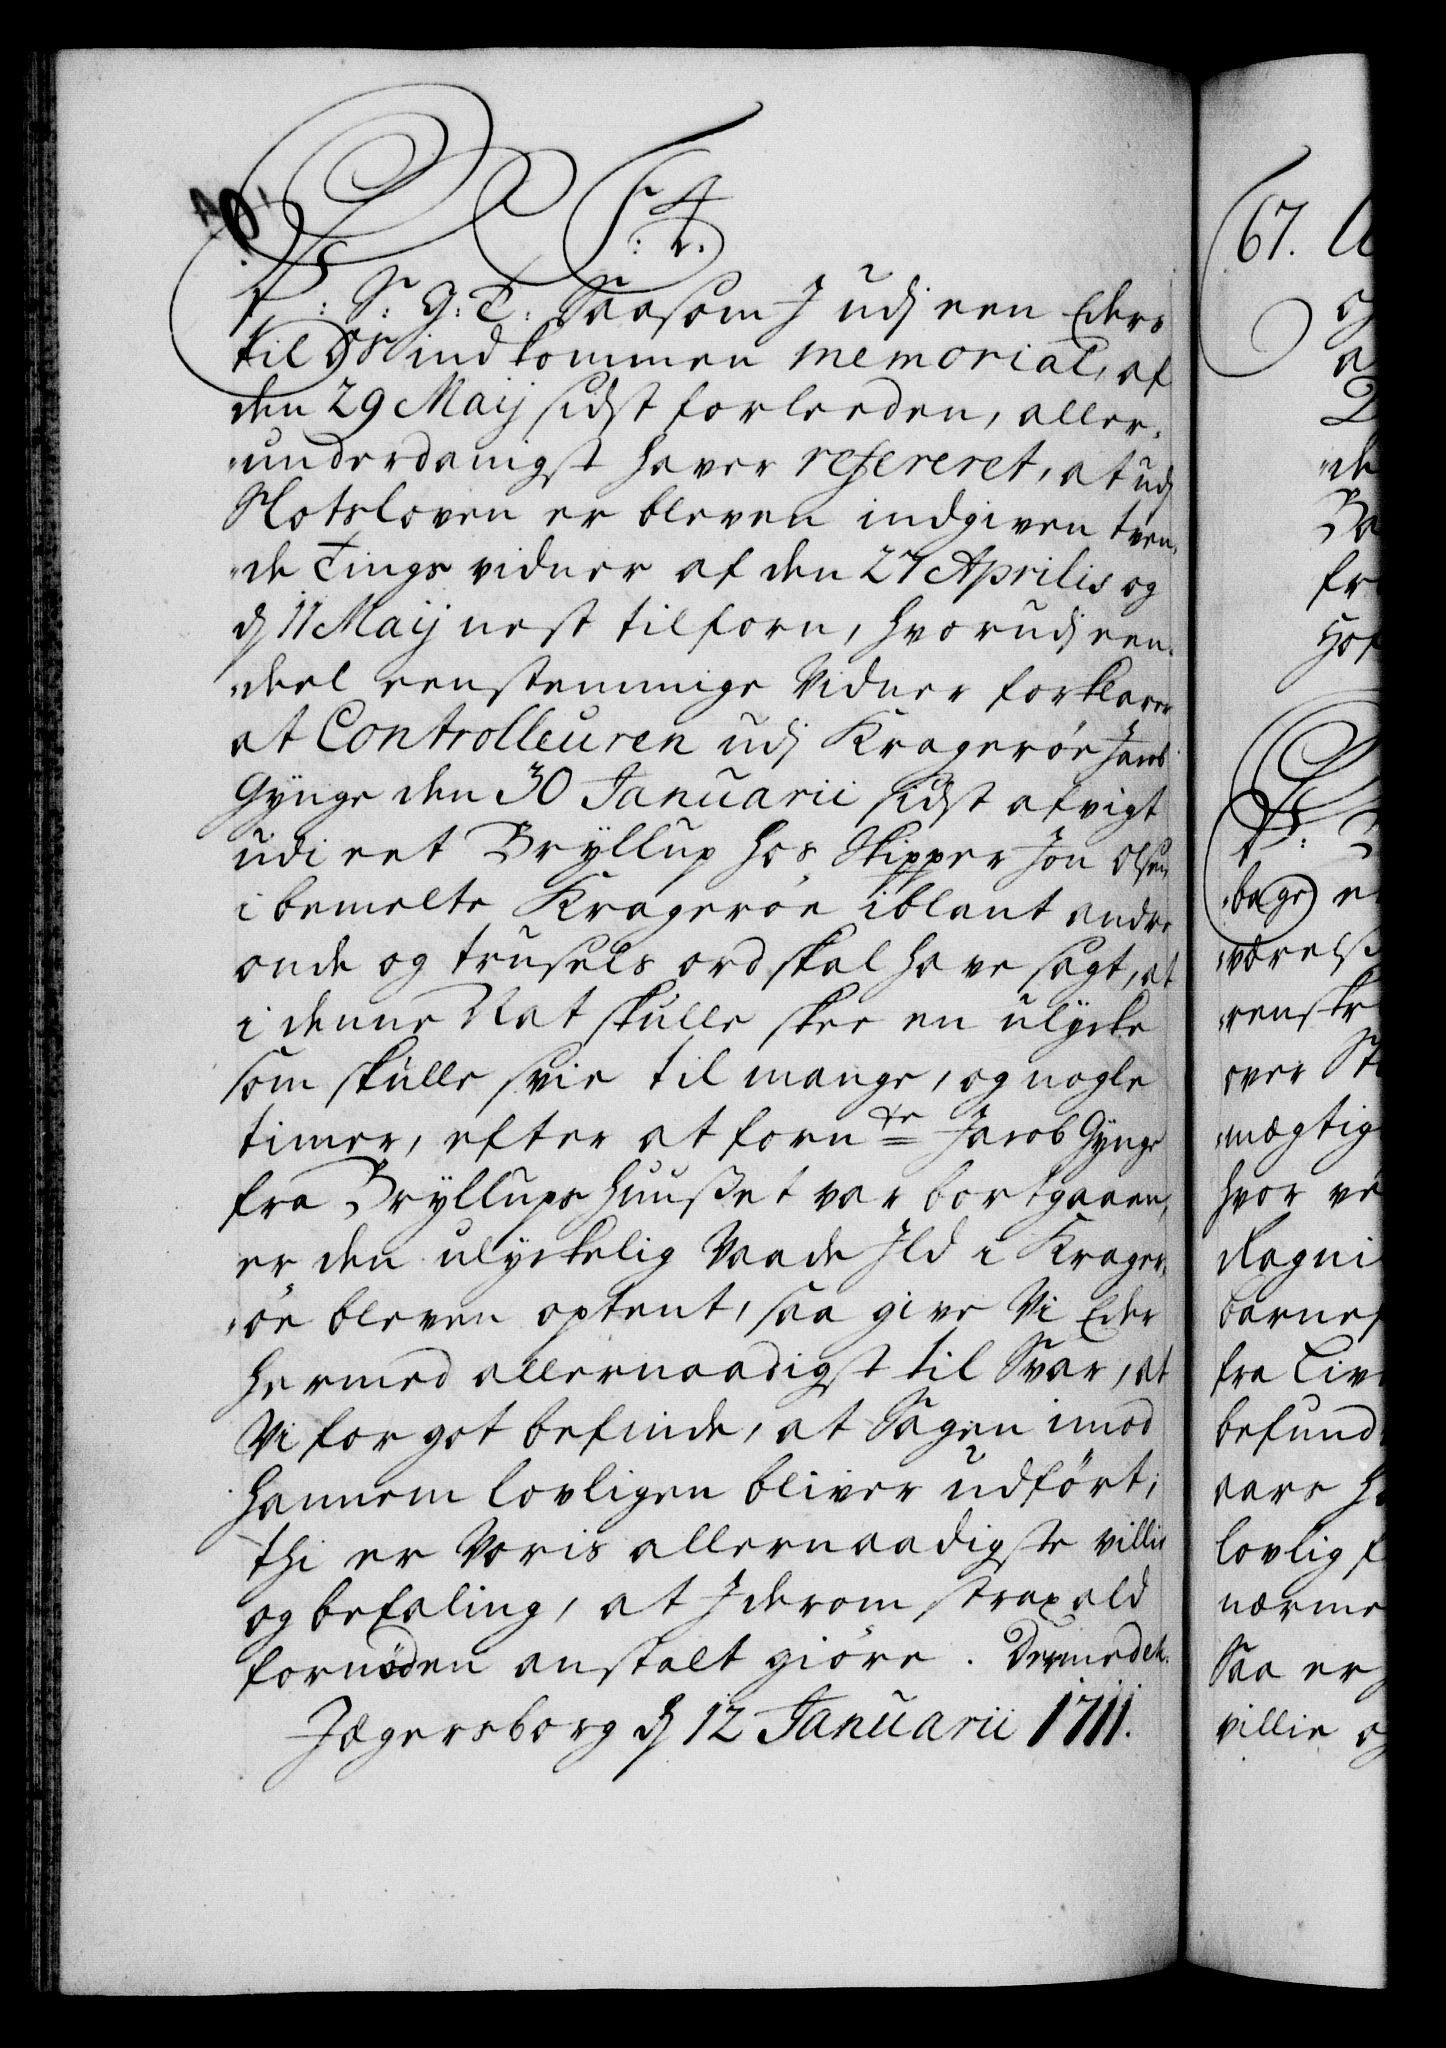 F: 4.
V: S: G: T: Saasom I udj een Eders
til Os indkommen memorial, af
den 29 Maij sidst forleeden, aller-
underdanigst haver refereret, at udj
Slotsloven er bleven indgiven tven-
de Tings vidner af den 27 Aprilis og
dj 11 Maij nest tilforn, hvorudj een-
deel eenstemmige Vidner forklarer
at Controlleuren udj Kragerøe Jacob
Gynge den 30 Januarii sidst afvigt
udi eet Bryllup hos Skipper Jon Olsen
i bemelte Kragerøe iblant andre
onde og trusels ord skal have sagt, at
i denne Nat skulle skee en ulycke
som skulle svie til mange, og nogle
timer, efter at fornte Jacob Gynge
fra Bryllups Huusset var bortgaaen,
er den ulyckelig Vaade Ild i Krager-
øe bleven optent, saa give Vi Eder
hermed allernaadigst til Svar, at
Vi for got befinde, at Sagen imod
hannem lovligen bliver udført;
thi er Voris allernaadigste villie
og befaling, at I derom strax ald
fornøden anstalt giøre. Dermed etc.
Jægersborg dj 12 Januarii 1711.
67.
de
fr
bage
værelse
over
mægtig
hvor
Ragni
fra Liv
befund
aars
lovlig
nærme
Saa er
villie